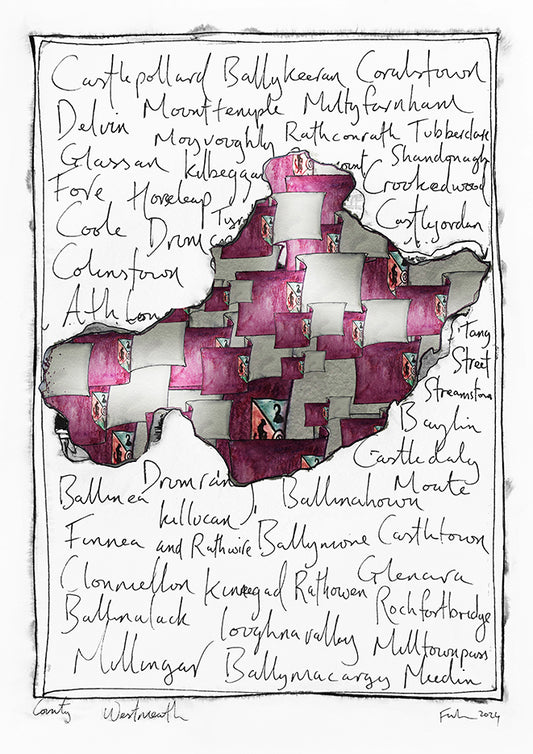 Castlepollard Ballykeeran Coralstown
Delvin Mounttemple Multyfarnham
Moyvoughly Rathconrath Tubberclare
Glassan Kilbeggan Shandonagh
Fore Horseleap Crookedwood
Coole Castlejordan
Colinstown
Tang
Street
Streamstown
Baylin
Castledaly
Ballinea Drumraney Ballinahown Moate
Finnea Killucan and Rathwire Ballymore Castletown
Clonmellon Kinnegad Rathowen Glencara
Ballinalack Loughnavalley Rochfortbridge
Milltownpass
Mullingar Ballynacargy Multin
County Westmeath 2024